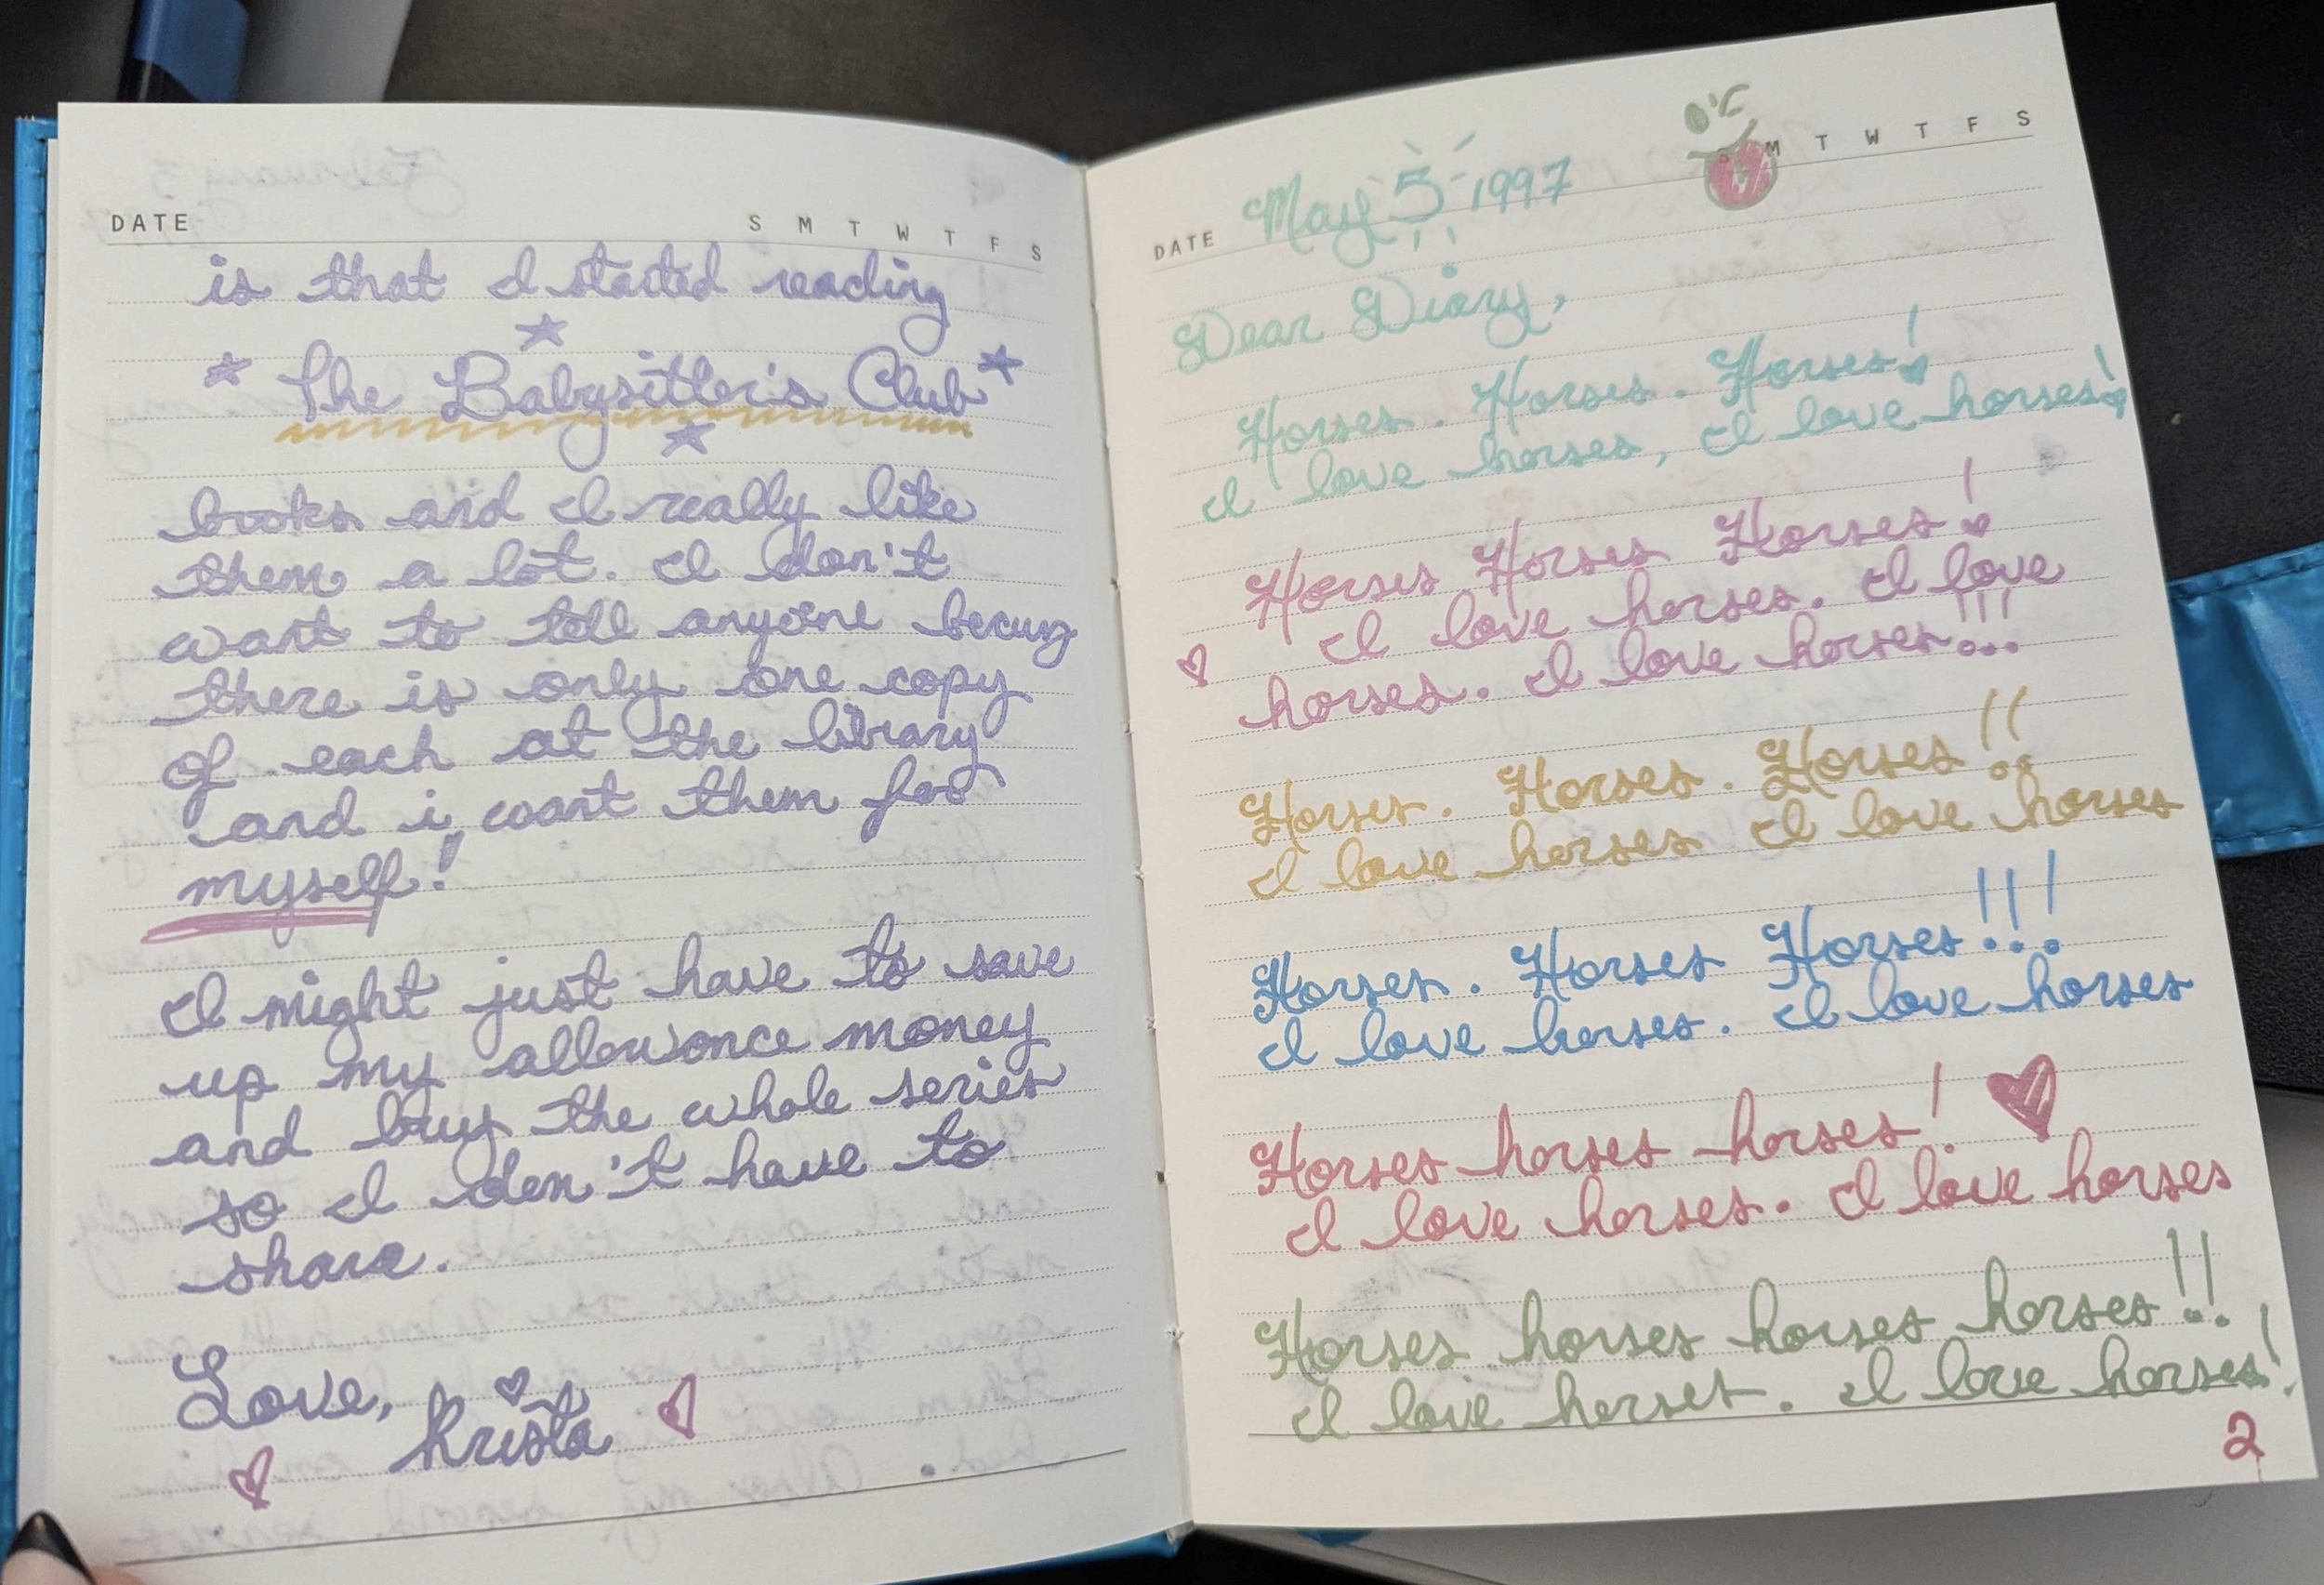 DATE S M T W T F S
is that I started reading
The Babysitter's Club
books and I really like
them a lot. I don't
want to tell anyone becuz
there is only one copy
of each at the library
and i want them for
myself!
I might just have to save
up my allowonce money
and buy the whole series
so I don't have to
share.
Love,
Krista
DATE May 5 1997 S M T W T F S
Dear Diary,
Horses. Horses. Horses!
I love horses, I love horses!
Horses Horses Horses!
I love horses. I love
horses. I love horses!!!
Horses. Horses. Horses!!
I love horses I love horses
Horses. Horses Horses!!!
I love horses. I love horses
Horses horses horses!
I love horses. I love horses
Horses horses horses horses!!
I love horses. I love horses!
2